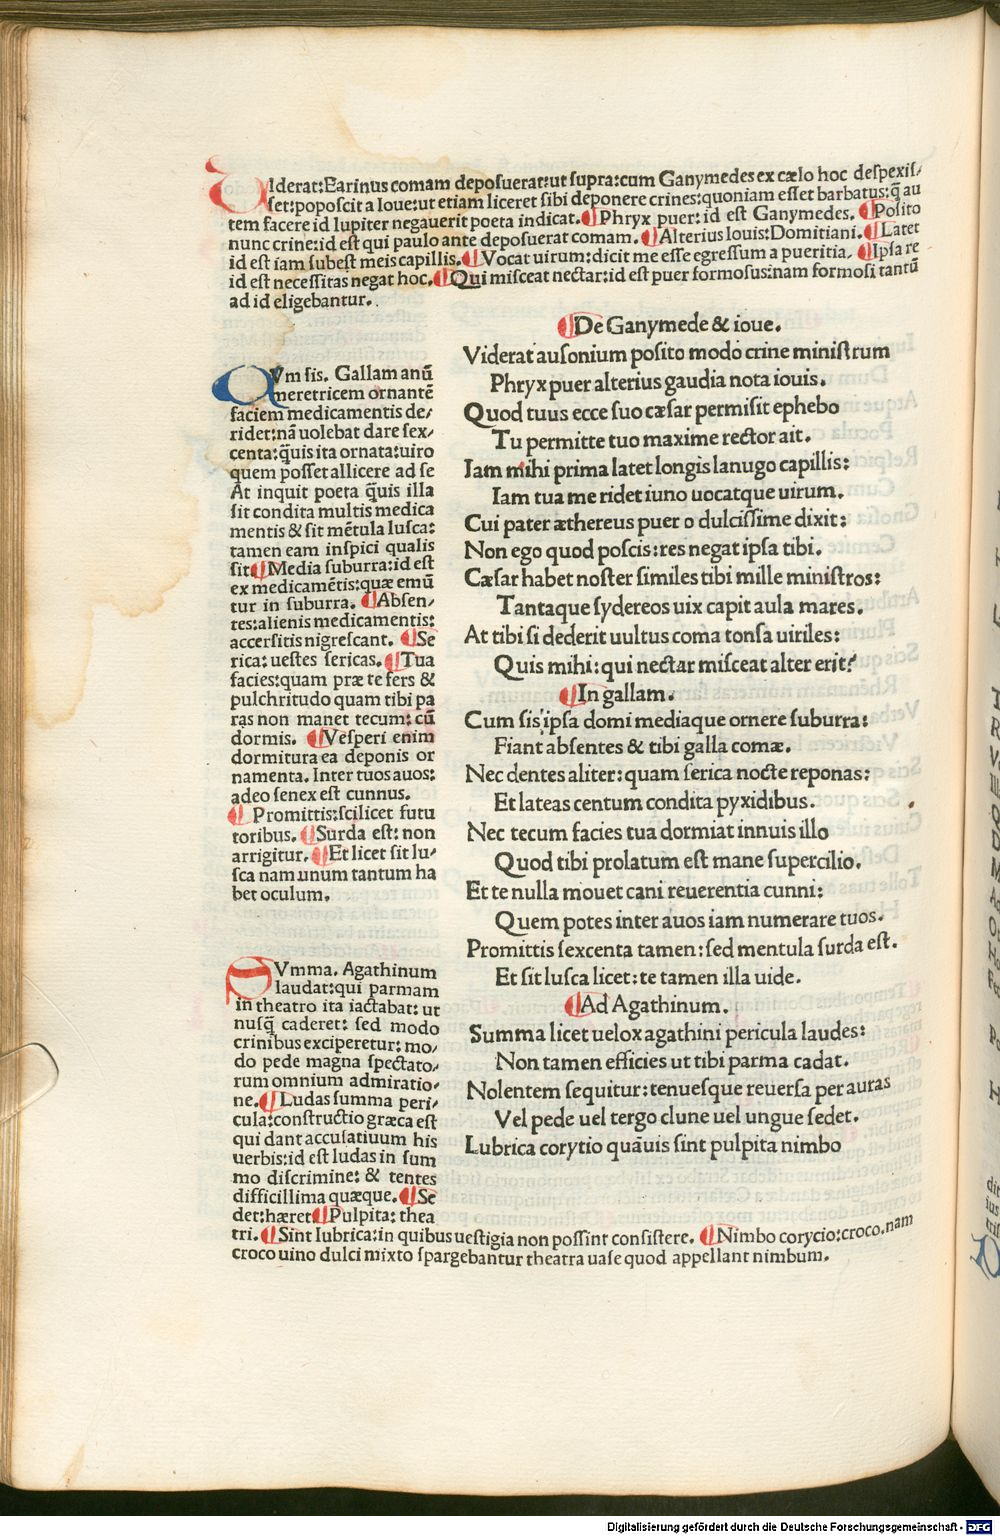 VIderat:Earinus comam deposuerat:ut supra:cum Ganymedes ex cælo hoc despexis/
set:poposcit a Ioue:ut etiam liceret sibi deponere crines:quoniam esset barbatus:q̄ au
tem facere id Iupiter negauerit poeta indicat.¶Phryx puer:id est Ganymedes.¶Posito
nunc crine:id est qui paulo ante deposuerat comam.¶Alterius Iouis:Domitiani.¶Latet
id est iam subest meis capillis.¶Vocat uirum:dicit me esse egressum a pueritia.¶Ipsa re
id est necessitas negat hoc.¶Qui misceat nectar:id est puer formosus:nam formosi tantū
ad id eligebantur.
QVm sis. Gallam anū
meretricem ornantē
faciem medicamentis de/
ridet:nā uolebat dare sex/
centa:q̄uis ita ornata:uiro
quem posset allicere ad se
At inquit poeta q̄uis illa
sit condita multis medica
mentis & sit mētula lusca:
tamen eam inspici qualis
sit¶Media suburra:id est
ex medicamētis:quæ emū
tur in suburra. ¶Absen/
tes:alienis medicamentis:
accersitis nigrescant. ¶Se
rica:uestes sericas.¶Tua
facies:quam præ te fers &
pulchritudo quam tibi pa
ras non manet tecum:cū
dormis. ¶Vesperi enim
dormitura ea deponis or
namenta. Inter tuos auos:
adeo senex est cunnus.
¶Promittis:scilicet futu
toribus.¶Surda est:non
arrigitur.¶Et licet sit lu/
sca nam unum tantum ha
bet oculum.
SVmma. Agathinum
laudat:qui parmam
in theatro ita iactabat:ut
nusq̄ caderet: sed modo
crinibus exciperetur:mo/
do pede magna spectato/
rum omnium admiratio/
ne.¶Ludas summa peri/
cula:constructio græca est
qui dant accusatiuum his
uerbis:id est ludas in sum
mo discrimine: & tentes
difficillima quæque.¶Se
det:hæret¶Pulpita:thea
tri.¶Sint lubrica:in quibus uestigia non possint consistere. ¶Nimbo corycio:croco.nam
croco uino dulci mixto spargebantur theatra uase quod appellant nimbum.
¶De Ganymede & ioue.
Viderat ausonium posito modo crine ministrum
Phryx puer alterius gaudia nota iouis.
Quod tuus ecce suo cæsar permisit ephebo
Tu permitte tuo maxime rector ait.
Iam mihi prima latet longis lanugo capillis:
Iam tua me ridet iuno uocatque uirum.
Cui pater æthereus puer o dulcissime dixit:
Non ego quod poscis:res negat ipsa tibi.
Cæsar habet noster similes tibi mille ministros:
Tantaque sydereos uix capit aula mares.
At tibi si dederit uultus coma tonsa uiriles:
Quis mihi:qui nectar misceat alter erit?
¶In gallam.
Cum sis ipsa domi mediaque ornere suburra:
Fiant absentes & tibi galla comæ.
Nec dentes aliter:quam serica nocte reponas:
Et lateas centum condita pyxidibus.
Nec tecum facies tua dormiat innuis illo
Quod tibi prolatum est mane supercilio.
Et te nulla mouet cani reuerentia cunni:
Quem potes inter auos iam numerare tuos.
Promittis sexcenta tamen:sed mentula surda est.
Et sit lusca licet:te tamen illa uide.
¶Ad Agathinum.
Summa licet uelox agathini pericula laudes:
Non tamen efficies ut tibi parma cadat.
Nolentem sequitur:tenuesque reuersa per auras
Vel pede uel tergo clune uel ungue sedet.
Lubrica corytio quāuis sint pulpita nimbo
Digitalisierung gefördert durch die Deutsche Forschungsgemeinschaft - DFG